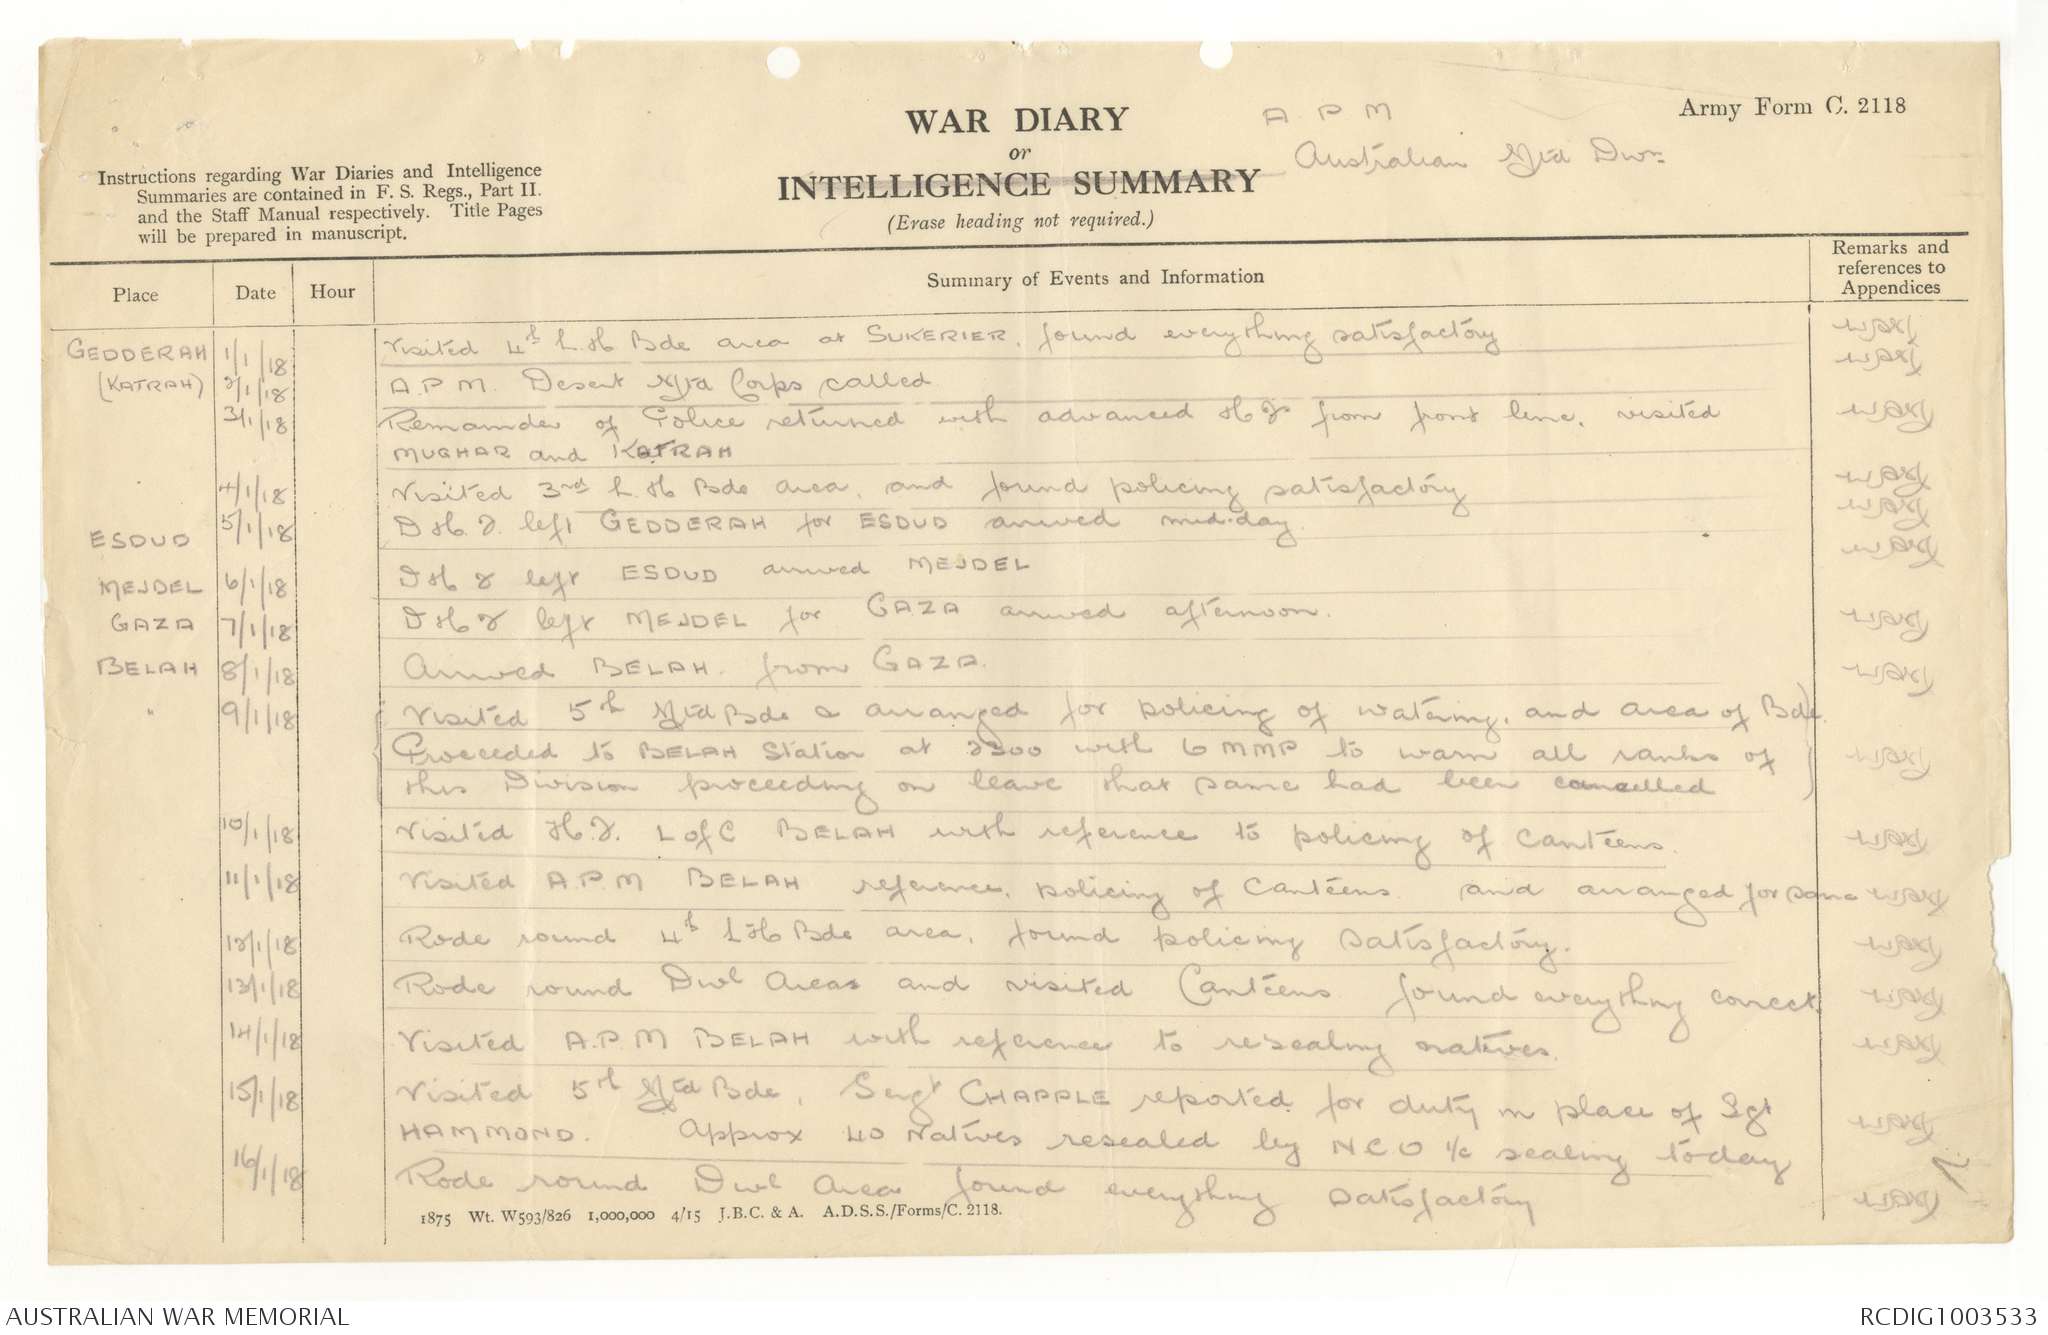 WAR DIARY
or
INTELLIGENCE SUMMARY
(Erase heading not required.)
A P M
Australian Mtd Divn
Army Form C. 2118
Instructions regarding War Diaries and Intelligence
Summaries are contained in F. S. Regs., Part II.
and the Staff Manual respectively. Title Pages
will be prepared in manuscript.
Place Date Hour Summary of Events and Information Remarks and references to Appendices
GEDDERAH 1/1/18 Visited 4th L.H Bde area at SUKERIER, found everything satisfactory
(KATRAH) 2/1/18 A.P.M. Desert Mtd Corps called
3/1/18 Remainder of Police returned with advanced HQ from front line, visited
MUGHAR and KATRAH
4/1/18 Visited 3rd L.H Bde area, and found policing satisfactory
ESDUD 5/1/18 D H.Q. left GEDDERAH for ESDUD arrived mid-day.
MEJDEL 6/1/18 D H Q left ESDUD arrived MEJDEL
GAZA 7/1/18 D H Q left MEJDEL for GAZA arrived afternoon.
BELAH 8/1/18 Arrived BELAH from GAZA.
" 9/1/18 Visited 5th Mtd Bde & arranged for policing of watering, and area of Bde.
Proceeded to BELAH Station at 2300 with 6 MMP to warn all ranks of
this Division proceeding on leave that same had been cancelled
10/1/18 Visited H.Q. L of C BELAH with reference to policing of canteens.
11/1/18 Visited A.P.M BELAH reference, policing of Canteens and arranged for same
12/1/18 Rode round 4th LH Bde area, found policing satisfactory.
13/1/18 Rode round Divl Areas and visited Canteens found everything correct.
14/1/18 Visited A.P.M BELAH with reference to resealing natives.
15/1/18 Visited 5th Mtd Bde, Sergt CHAPPLE reported for duty in place of Sgt
HAMMOND. Approx 40 Natives resealed by N C O i/c sealing today
16/1/18 Rode round Divl Area found everything satisfactory
1875 Wt. W593/826 1,000,000 4/15 J.B.C. & A. A.D.S.S./Forms/C. 2118.
AUSTRALIAN WAR MEMORIAL
RCDIG1003533